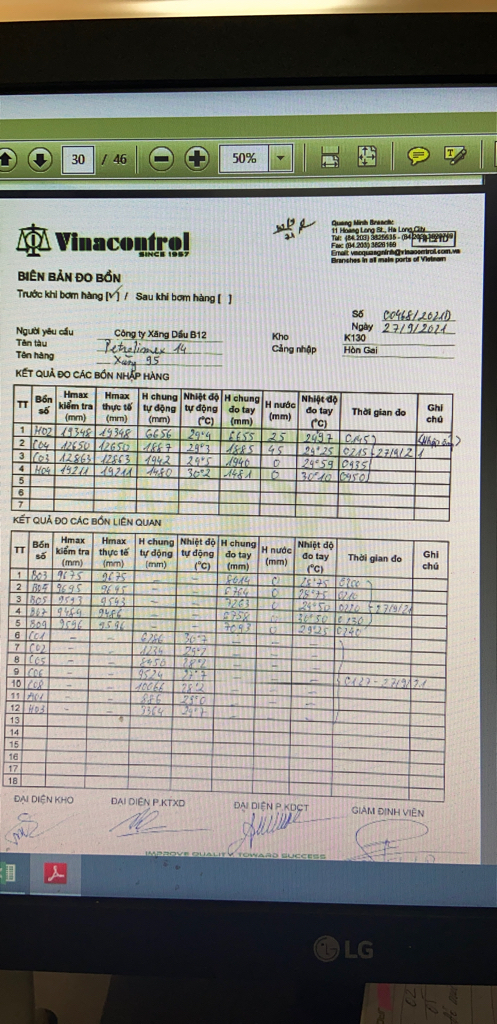 30 / 46
50%
T
Vinacontrol
SINCE 1957
Quang Ninh Branch:
11 Hoang Long St., Ha Long City
Tel: (84.203) 3825635 -
Fax: (84.203) 3826169
Email: vacoquangninh@vinacontrol.com.vn
Branches in all main ports of Vietnam
BIÊN BẢN ĐO BỒN
Trước khi bơm hàng [√] / Sau khi bơm hàng [ ]
Số 00468/2021D
Ngày 27/9/2021
Người yêu cầu Công ty Xăng Dầu B12 Kho K130
Tên tàu Petrolimex 14 Cảng nhập Hòn Gai
Tên hàng Xăng 95
KẾT QUẢ ĐO CÁC BỒN NHẬP HÀNG
TT Bồn số Hmax kiểm tra (mm) Hmax thực tế (mm) H chung tự động (mm) Nhiệt độ tự động (°C) H chung đo tay (mm) H nước (mm) Nhiệt độ đo tay (°C) Thời gian đo Ghi chú
1 H02 19348 19348 6656 29°4 6655 25 0145
2 C04 12650 12650 1887 29°3 1885 45 29°25 0215 - 27/9/21
3 C03 12863 12863 1942 29°5 1940 0 29°59 0935
4 H04 19211 19211 1480 30°2 1481 0 30°10 0950
5
6
7
KẾT QUẢ ĐO CÁC BỒN LIÊN QUAN
TT Bồn số Hmax kiểm tra (mm) Hmax thực tế (mm) H chung tự động (mm) Nhiệt độ tự động (°C) H chung đo tay (mm) H nước (mm) Nhiệt độ đo tay (°C) Thời gian đo Ghi chú
1 B03 9675 9675 - - 8014 0 28°75 0200
2 9695 9695 - - 6764 0 28°75 0210
3 B05 9543 9543 - - 7263 0 0220 - 27/9/21
4 B07 - - 6758 0 30°50 0230
5 B09 9596 9596 - - 7093 0 29°25 0240
6 C01 - - 6286 30°7 - - -
7 C02 - - 1234 - - -
8 C05 - - 8450 28°2 - - -
9 C06 - - 9524 - - -
10 C08 - - 10066 28°2 - - - 0127 - 27/9/21
11 - - 886 29°0 - - -
12 H03 - - 29°7 - - -
13
14
15
16
17
18
ĐẠI DIỆN KHO ĐẠI DIỆN P.KTXD ĐẠI DIỆN P.KDCT GIÁM ĐỊNH VIÊN
IMPROVE QUALITY TOWARD SUCCESS
LG